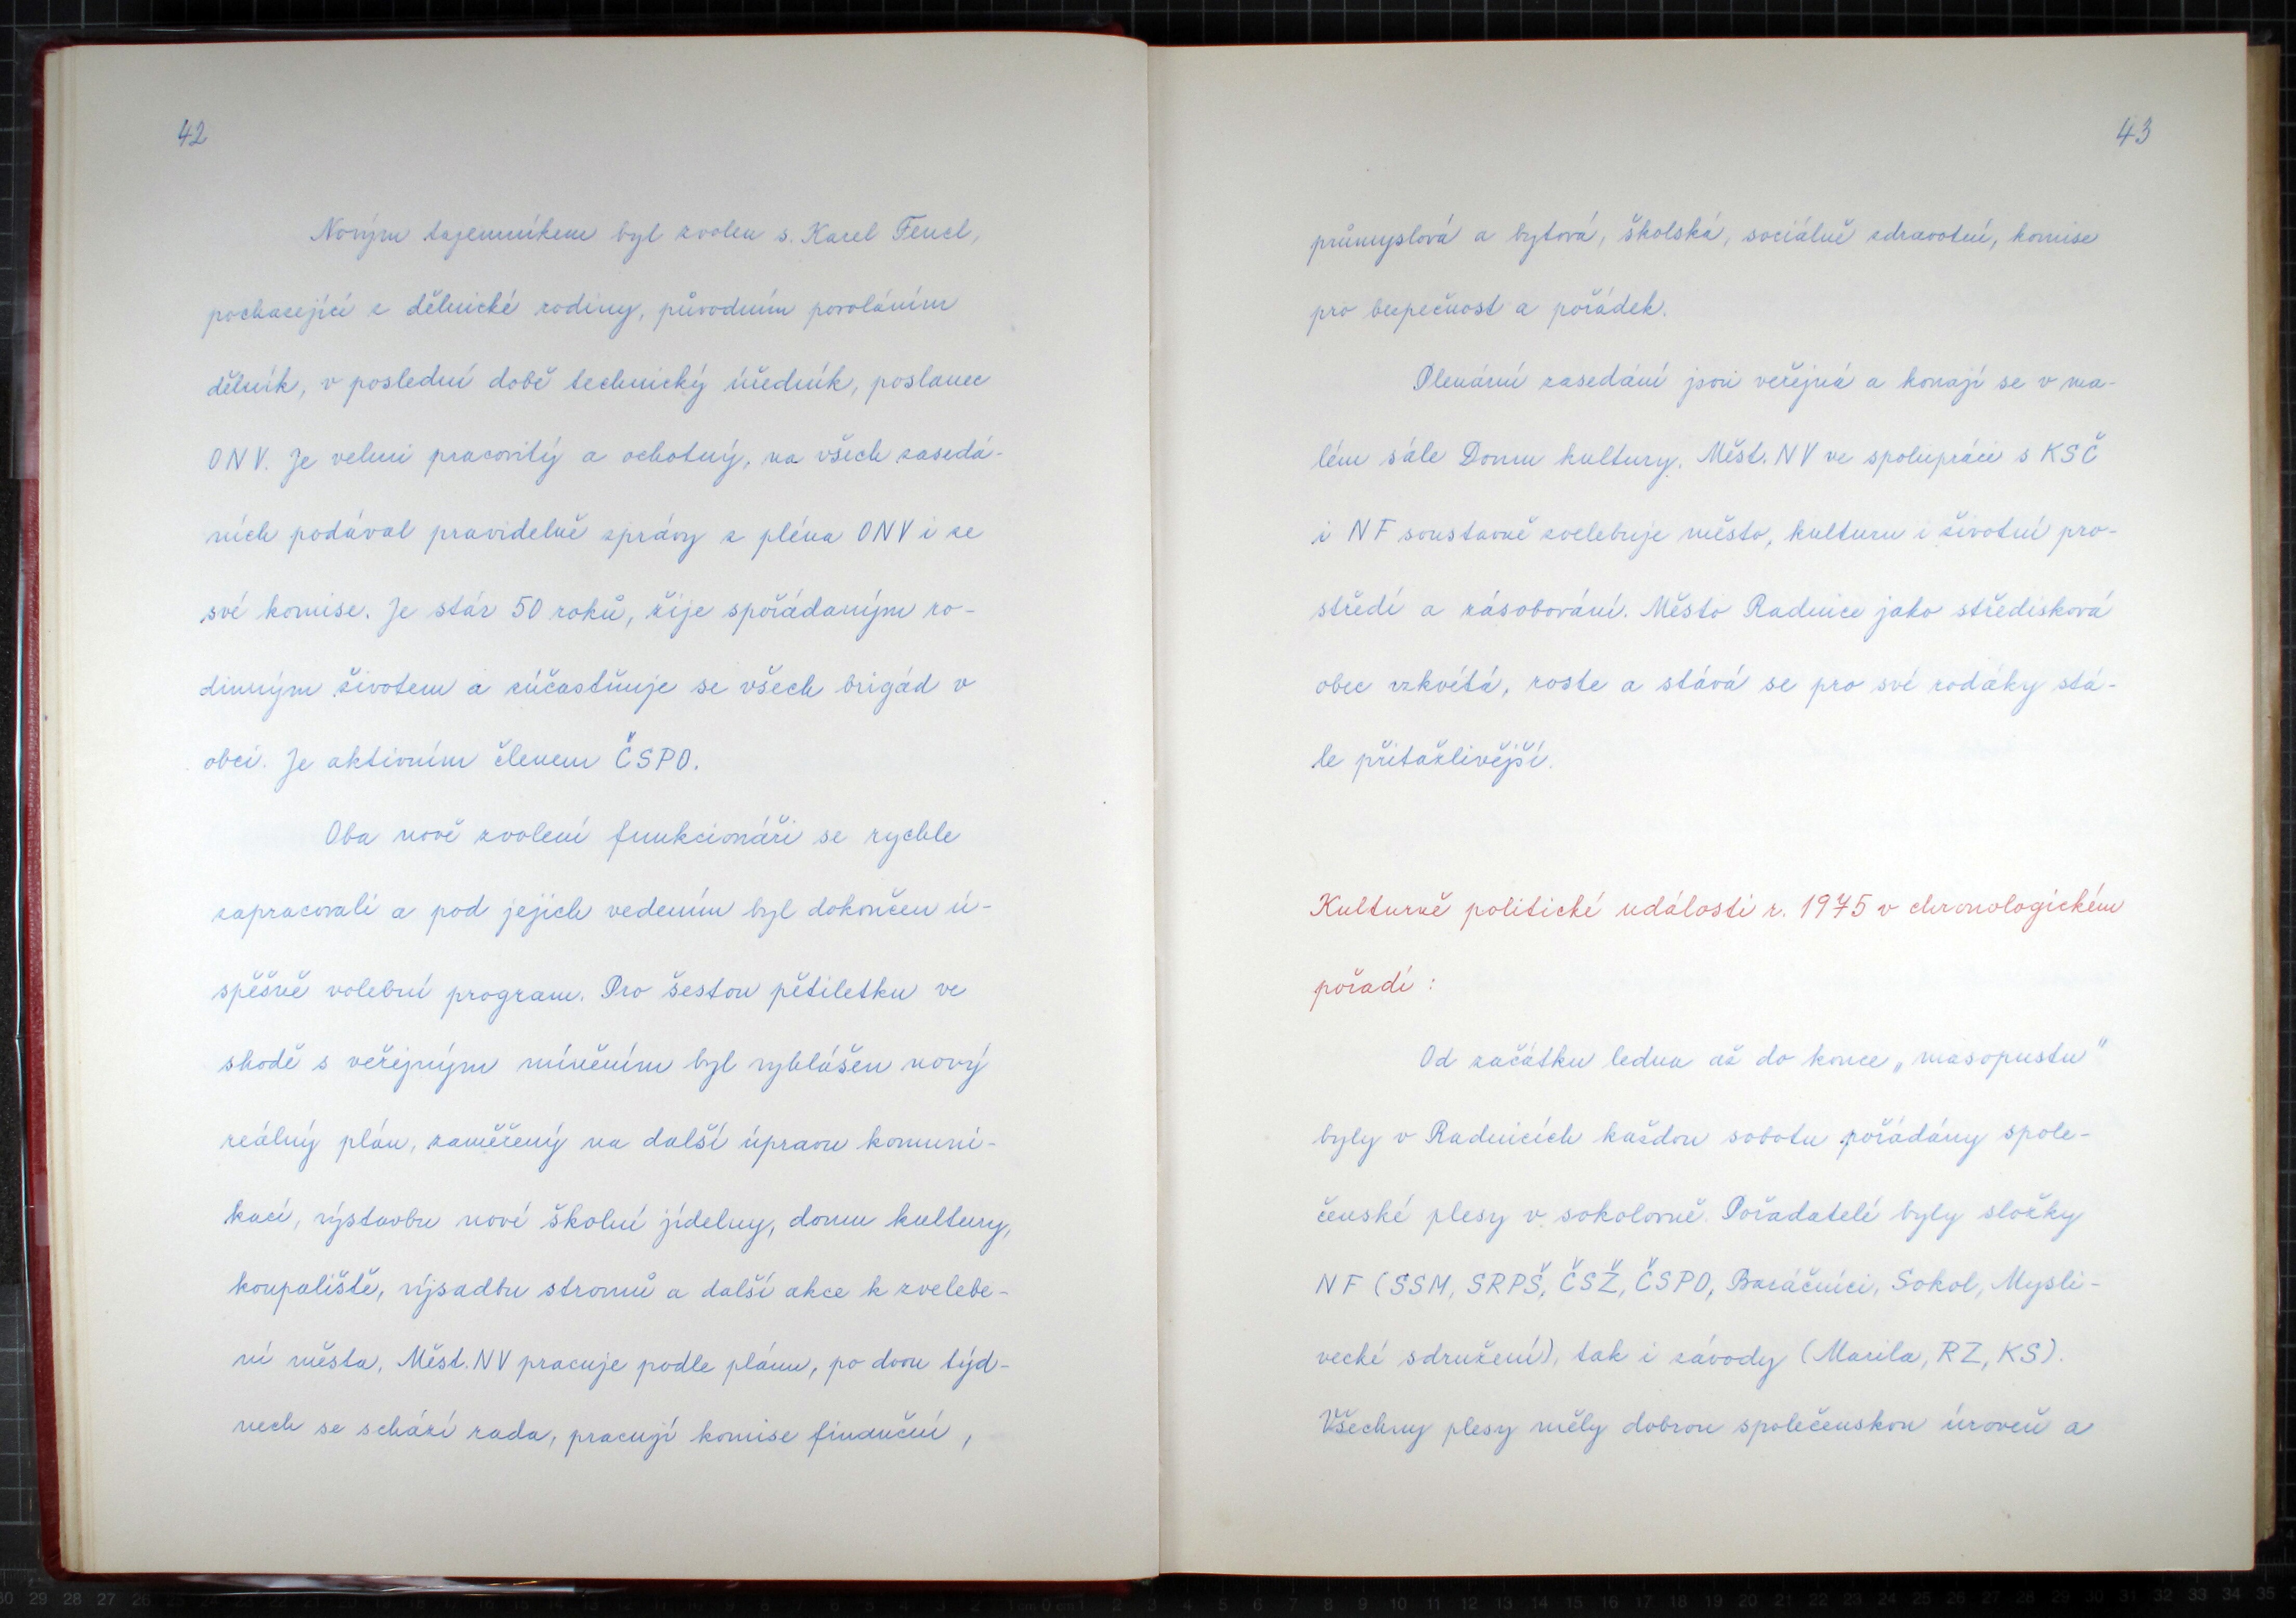 42
Novým tajemníkem byl zvolen s. Karel Fencl,
pocházející z dělnické rodiny, původním povoláním
dělník, v poslední době technický úředník, poslanec
ONV. Je velmi pracovitý a ochotný, na všech zasedá-
ních podával pravidelně zprávy z pléna ONV i ze
své komise. Je stár 50 roků, žije spořádaným ro-
dinným životem a zúčastňuje se všech brigád v
obci. Je aktivním členem ČSPO.
Oba nově zvolení funkcionáři se rychle
zapracovali a pod jejich vedením byl dokončen ú-
spěšně volební program. Pro šestou pětiletku ve
shodě s veřejným míněním byl vyhlášen nový
reálný plán, zaměřený na další úpravu komuni-
kací, výstavbu nové školní jídelny, domu kultury,
koupaliště, výsadbu stromů a další akce k zvelebe-
ní města. Měst. NV pracuje podle plánu, po dvou týd-
nech se schází rada, pracují komise finanční,
43
průmyslová a bytová, školská, sociálně zdravotní, komise
pro bezpečnost a pořádek.
Plenární zasedání jsou veřejná a konají se v ma-
lém sále Domu kultury. Měst. NV ve spolupráci s KSČ
i NF soustavně zvelebuje město, kulturu i životní pro-
středí a zásobování. Město Radnice jako středisková
obec vzkvítá, roste a stává se pro své rodáky stá-
le přitažlivější.
Kulturně politické události r. 1975 v chronologickém
pořadí :
Od začátku ledna až do konce „masopustu"
byly v Radnicích každou sobotu pořádány spole-
čenské plesy v sokolovně. Pořadatelé byly složky
NF (SSM, SRPŠ, ČSŽ, ČSPO, Baráčníci, Sokol, Mysli-
vecké sdružení), tak i závody (Masila, RZ, KS).
Všechny plesy měly dobrou společenskou úroveň a